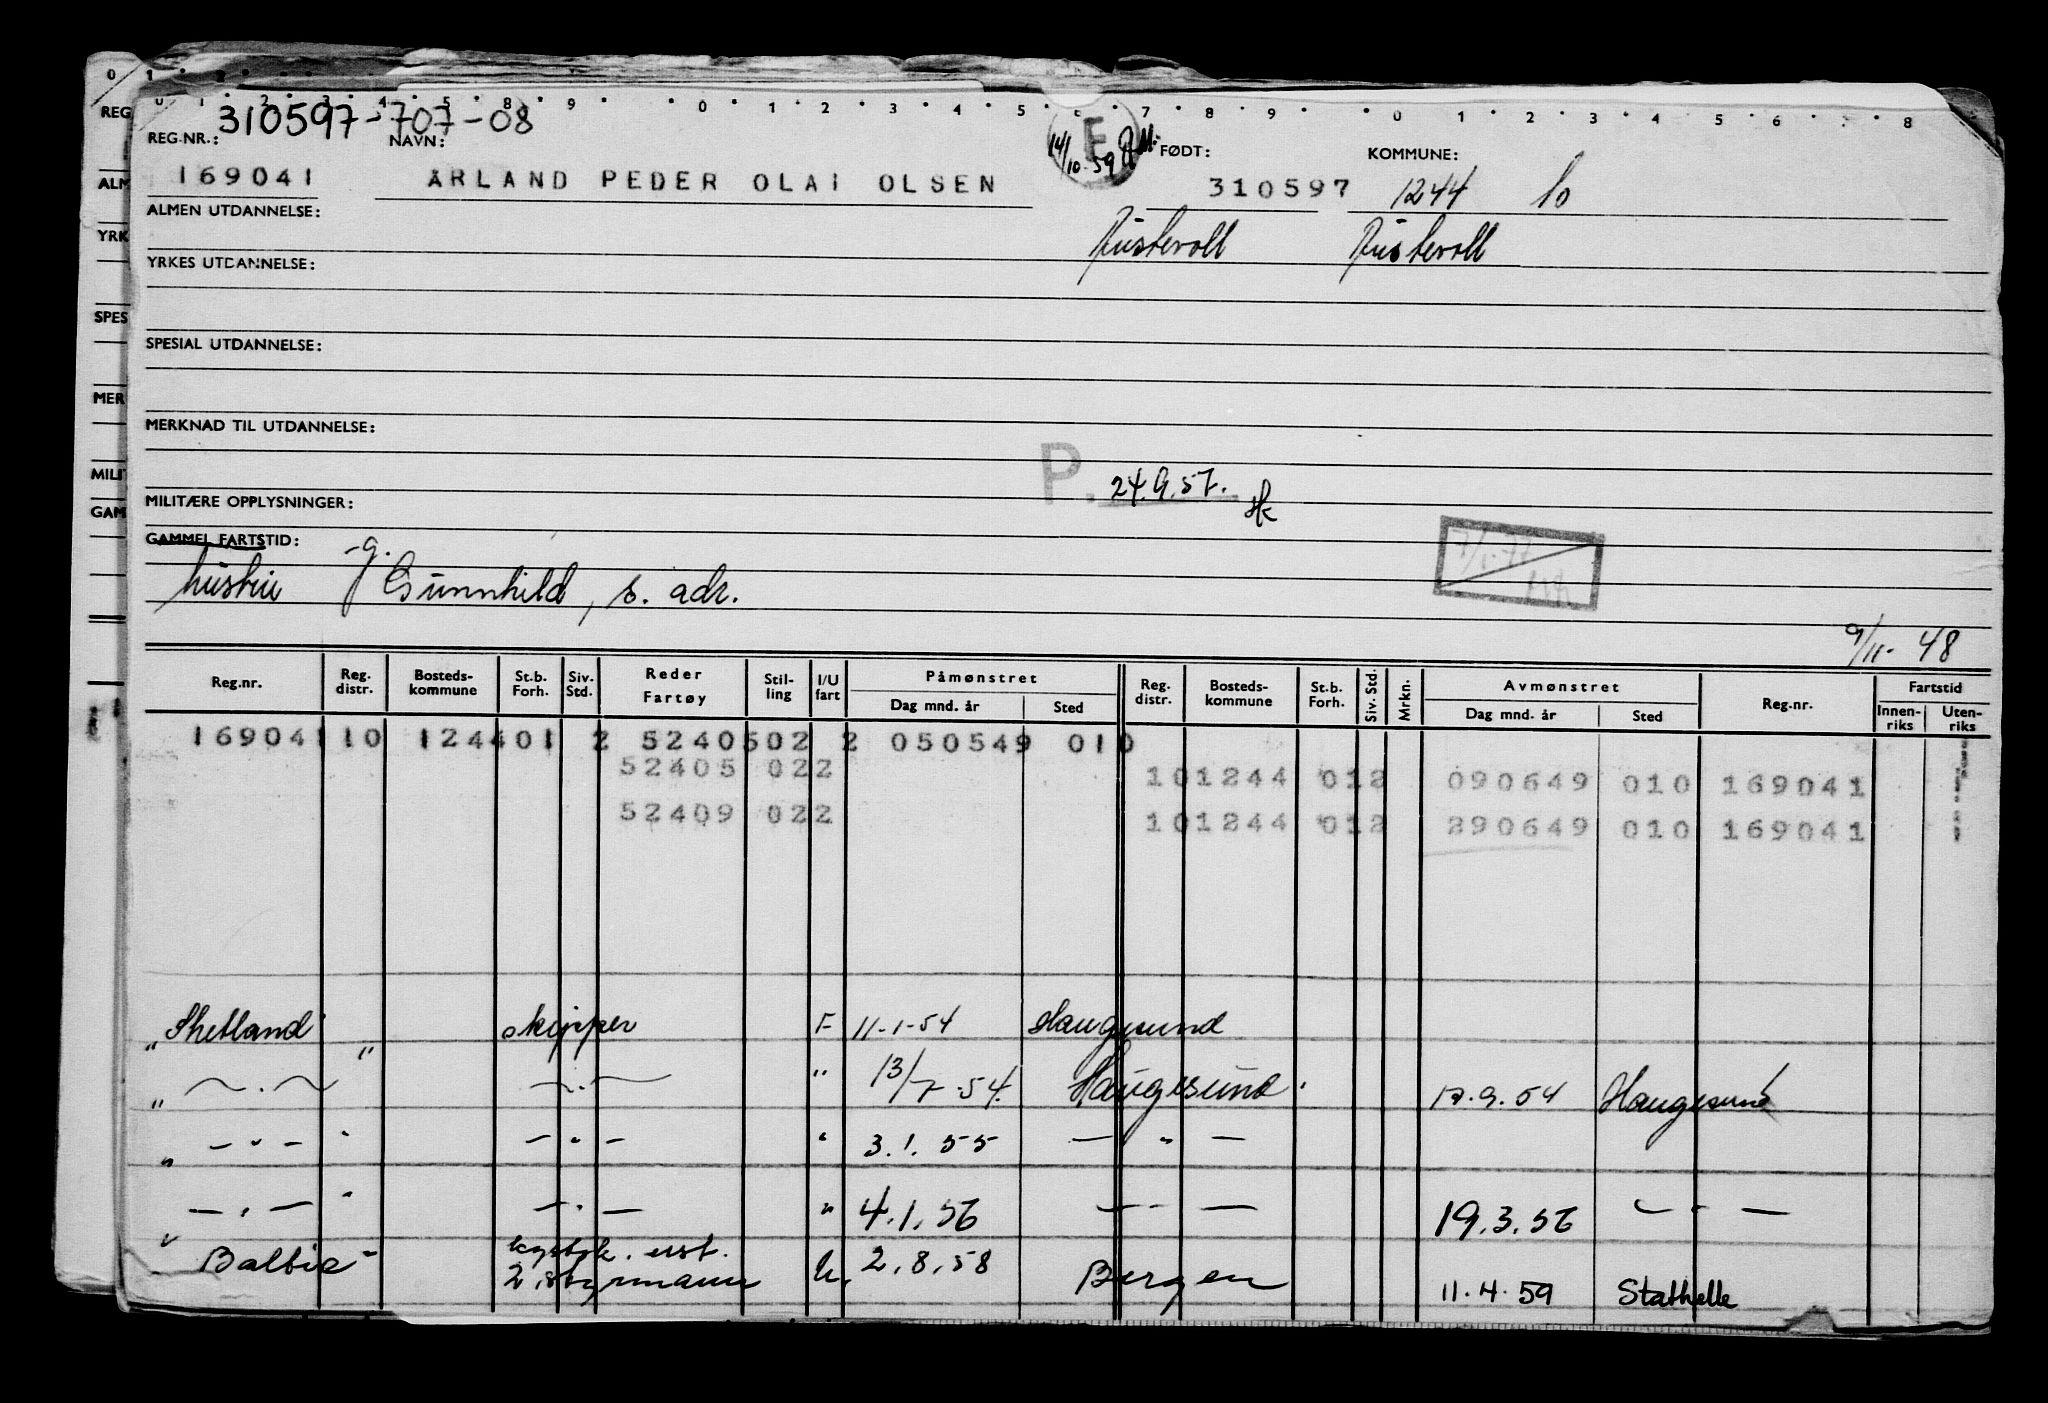 0 1 2
0 1 2 3 4 5 8 9 0 1 2 3 4 5 6 7 8 9 0 1 2 3 4 5 6 7 8
REG
REG.NR.: 310597-707-08 NAVN: 14/10.59 E FØDT: KOMMUNE:
ALM 169041 ÅRLAND PEDER OLAI OLSEN 310597 1244 10
ALMEN UTDANNELSE:
YRK Austevoll Austevoll
YRKES UTDANNELSE:
SPES
SPESIAL UTDANNELSE:
MER
MERKNAD TIL UTDANNELSE:
MILI P. 24.9.57.
MILITÆRE OPPLYSNINGER:
GAM
GAMMEL FARTSTID: g.
hustru Gunnhild, s. adr.
9/11-48
Reg.nr. Reg. distr. Bosteds-kommune St.b. Forh. Siv. Std. Reder Fartøy Stil-ling I/U fart Påmønstret Dag mnd. år Sted Reg. distr. Bosteds-kommune St.b. Forh. Siv. Std. Mrkn. Avmønstret Dag mnd. år Sted Reg.nr. Fartstid Innen-riks Uten-riks
169041 10 124401 2 5240502 2 050549 010
52405 022 101244 012 090649 010 169041
52409 022 101244 012 290649 010 169041
„Shetland" skipper F 11-1-54 Haugesund
„ ~.~ ~.~ " 13/7-54. Haugesund. 17.9.54 Haugesund
„ -"- " -"- " 3.1.55 - " -
„ -"- " -"- " 4.1.56 - " - 19.3.56 - " -
"Baltic" kystsk. eksst. 2. styrmann U. 2.8.58 Bergen 11.4.59 Stathelle